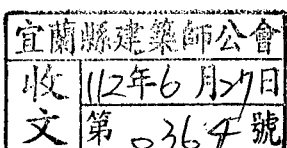 宜蘭縣建築師公會
收文
112年6月27日
第0364號